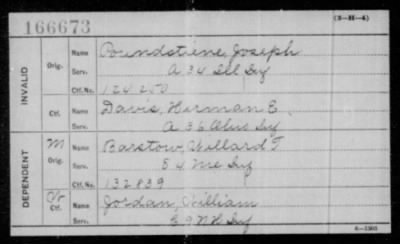 166673
(3—H—4)
INVALID
Orig.
Name Poundstone, Joseph
Serv. A 34 Ill Inf
Ctf. No. 124250
Ctf.
Name Davis, Herman E.
Serv. A 36 Ohio Inf
DEPENDENT
M
Orig.
Name Barstow, Willard T
Serv. 54 Me Inf
Ctf. No. 132839
Ctf.
Name Jordan, William
Serv. E 9 N H Inf